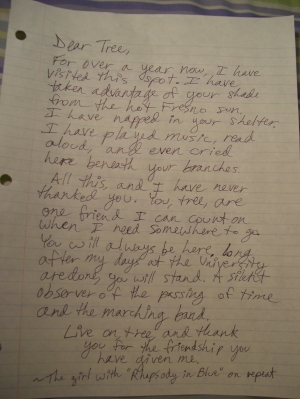 Dear Tree,
For over a year now, I have
visited this spot. I have
taken advantage of your shade
from the hot Fresno sun.
I have napped in your shelter.
I have played music, read
aloud, and even cried
here beneath your branches.
All this, and I have never
thanked you. You, tree, are
one friend I can count on
when I need somewhere to go.
You will always be here, long
after my days at the University
are done, you will stand. A silent
observer of the passing of time
and the marching band.
Live on, tree, and thank
you for the friendship you
have given me.
~The girl with "Rhapsody in Blue" on repeat